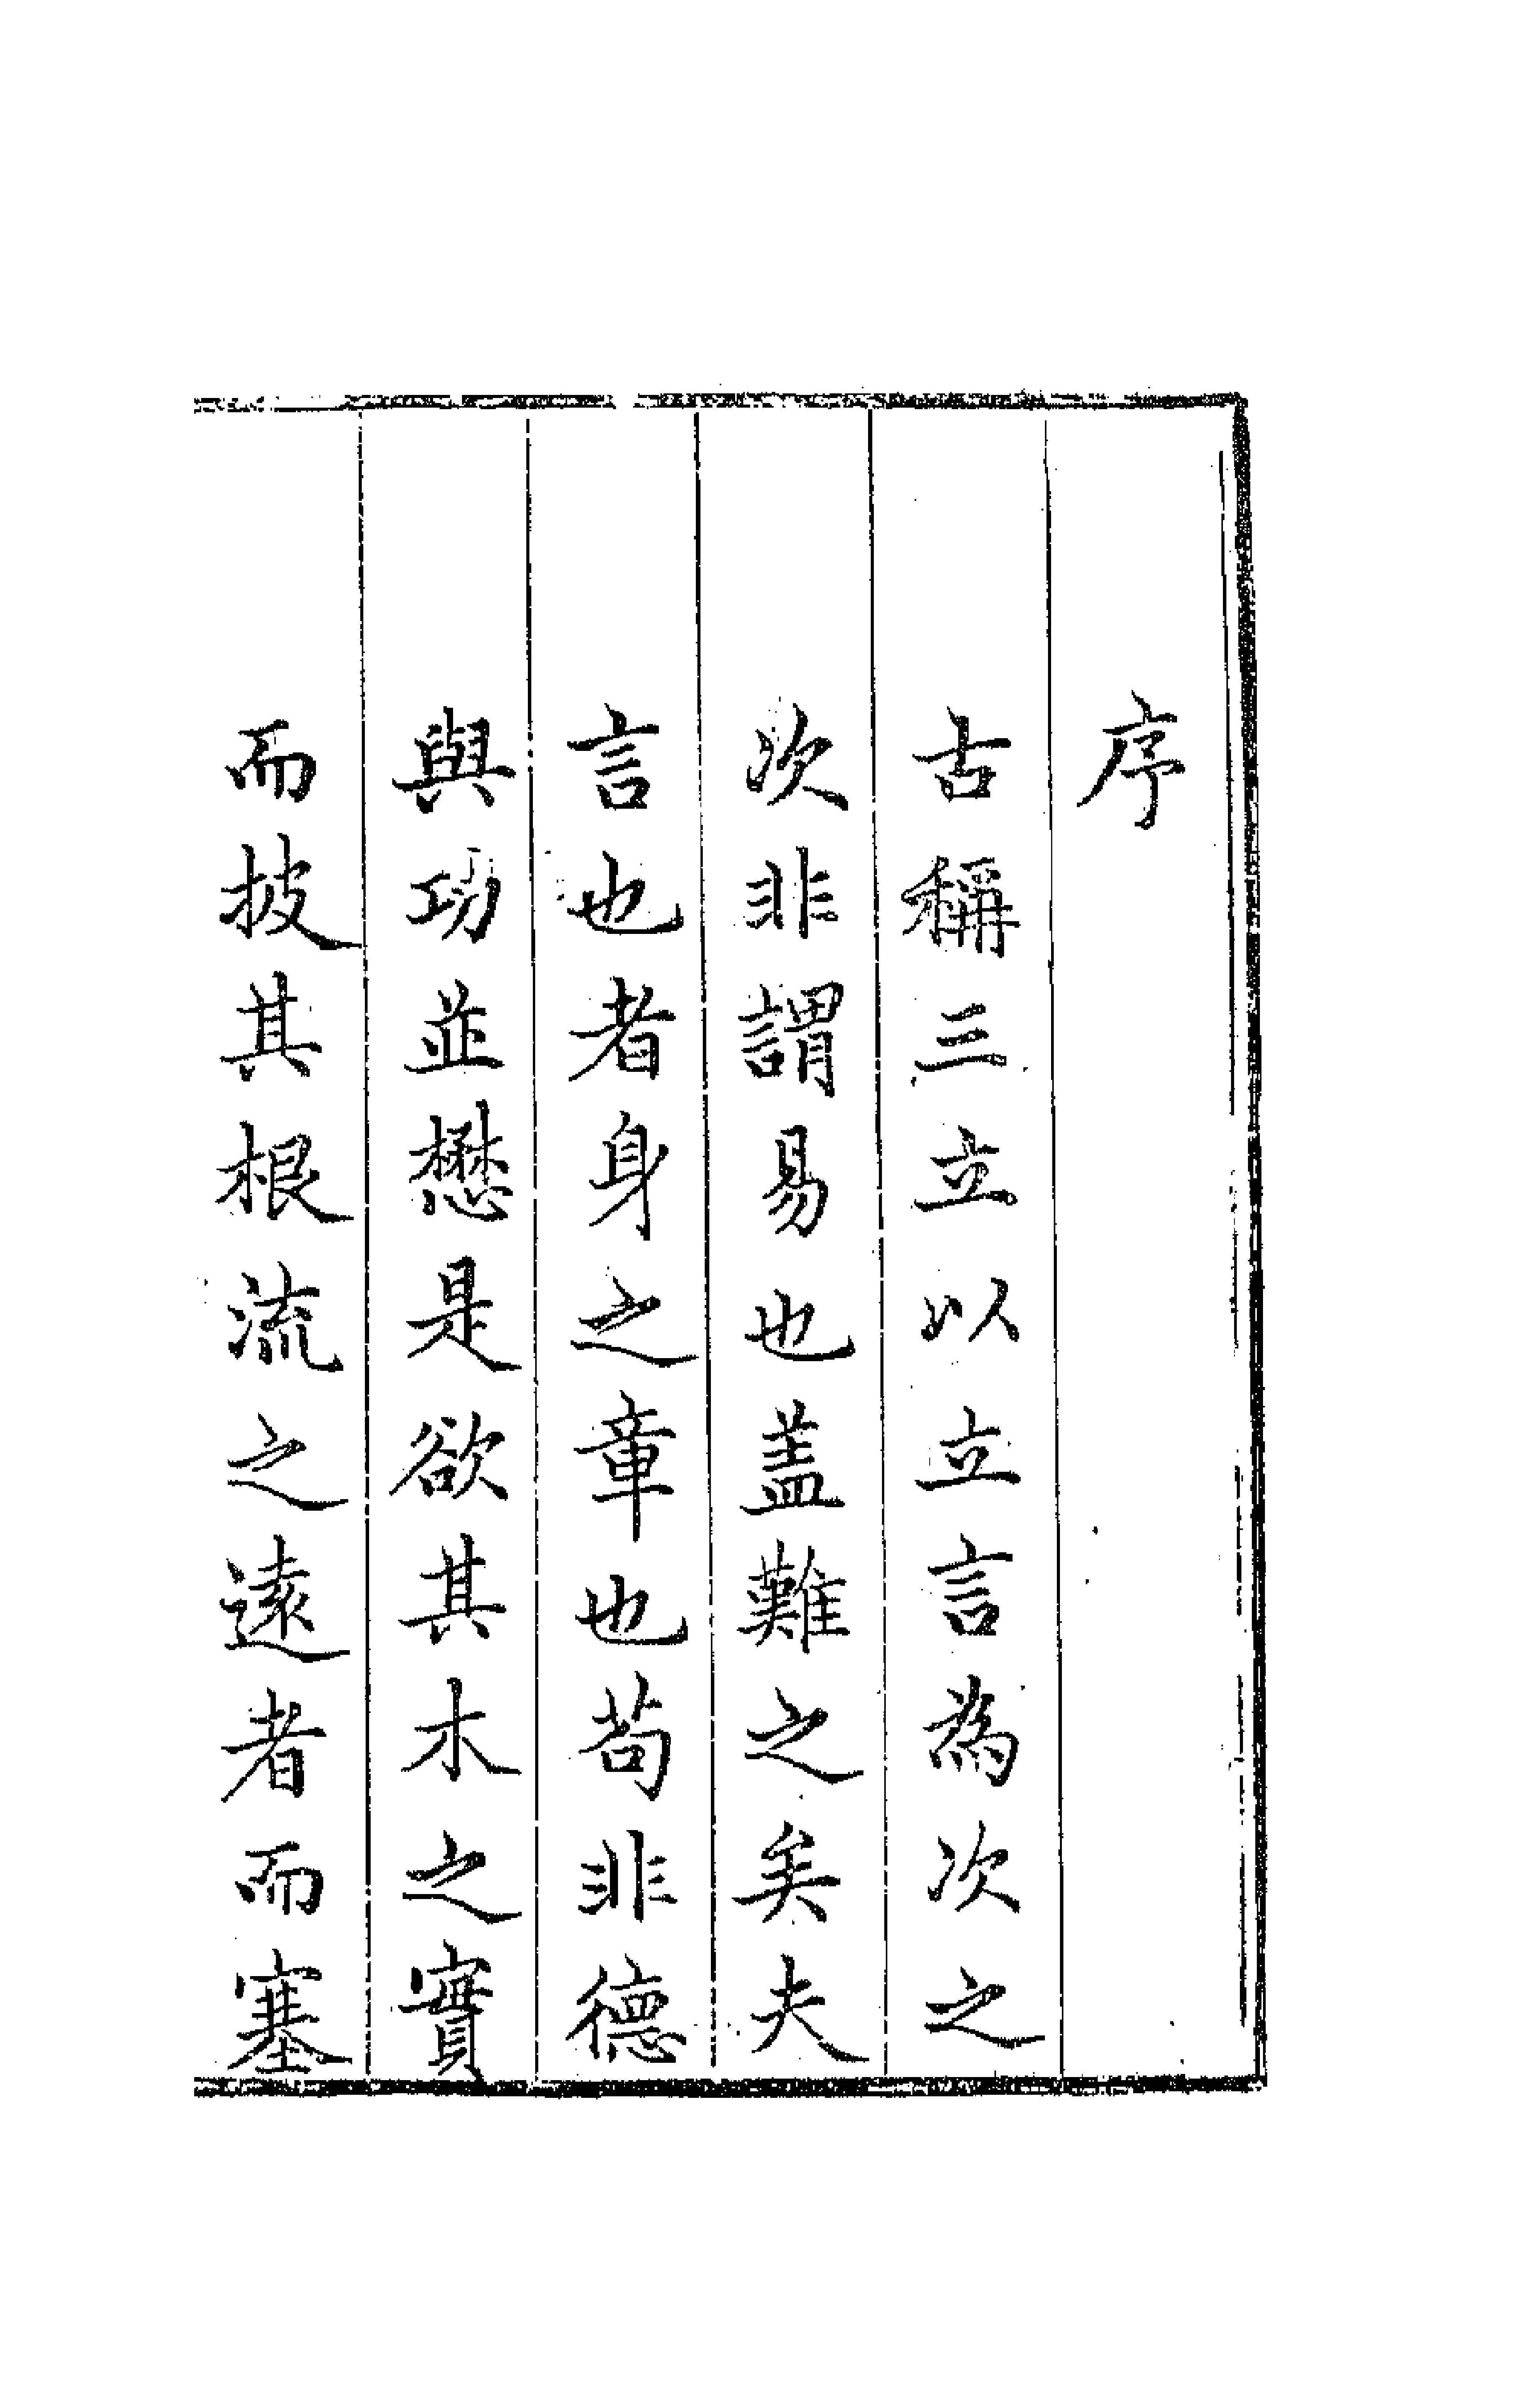 序
古稱三立以立言為次之
次非謂易也盖難之矣夫
言也者身之章也苟非德
與功並懋是欲其木之實
而披其根流之遠者而塞